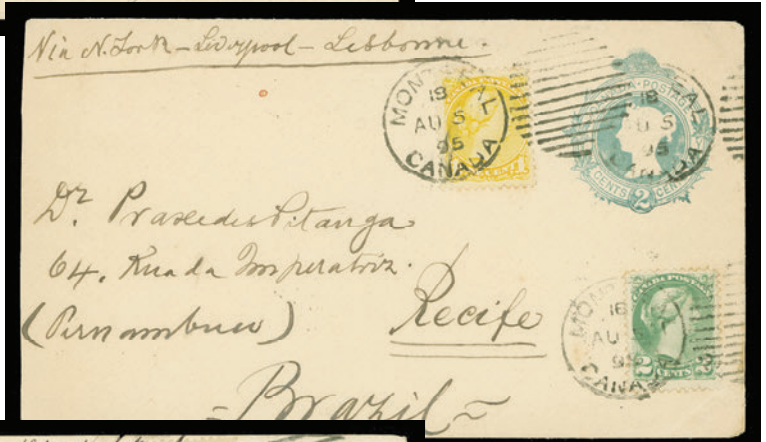 Via N. York – Liverpool – Lisbonne.
MONTREAL
18
AU 5
95
CANADA
CANADA POSTAGE
MONTREAL
18
AU 5
95
CANADA
CENTS 2 CENTS
Dr. Praxedes Pitanga
64, Rua da Imperatriz.
(Pernambuco) Recife
– Brazil –
CANADA POSTAGE
MONTREAL
16
AU
95
CANADA
2 CENTS 2